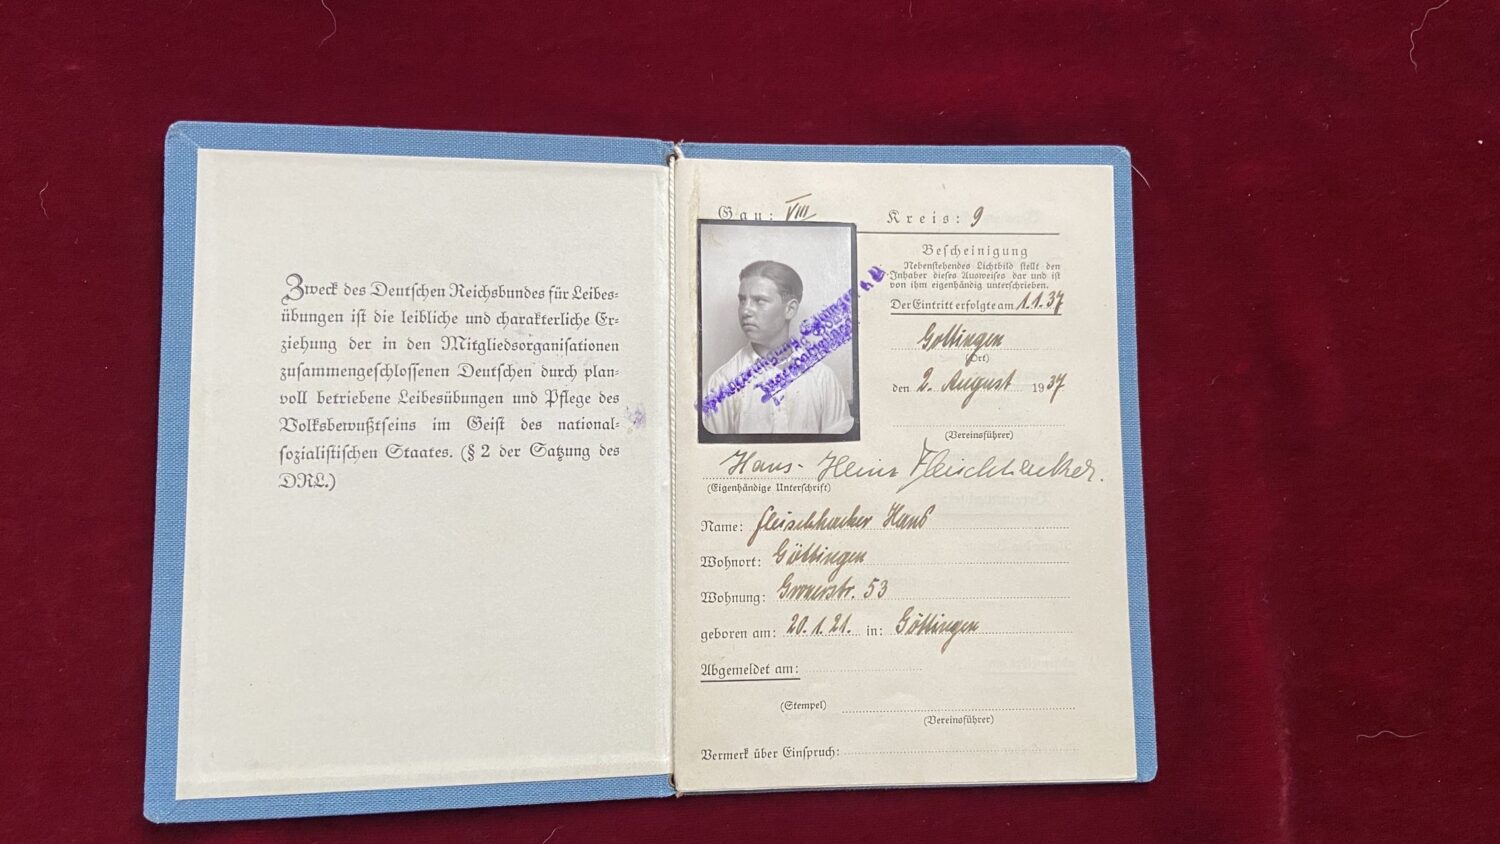 Zweck des Deutschen Reichsbundes für Leibes-
übungen ist die leibliche und charakterliche Er-
ziehung der in den Mitgliedsorganisationen
zusammengeschlossenen Deutschen durch plan-
voll betriebene Leibesübungen und Pflege des
Volksbewußtseins im Geist des national-
sozialistischen Staates. (§ 2 der Satzung des
DRL.)
Gau: VIII Kreis: 9
Bescheinigung
Nebenstehendes Lichtbild stellt den
Inhaber dieses Ausweises dar und ist
von ihm eigenhändig unterschrieben.
Der Eintritt erfolgte am 1.1.37
Göttingen
(Ort)
den 2. August 1937
(Vereinsführer)
Hans-Heinz Fleischhacker.
(Eigenhändige Unterschrift)
Name: Fleischhacker Hans
Wohnort: Göttingen
Wohnung: Gronerstr. 53
geboren am: 20.1.21. in: Göttingen
Abgemeldet am:
(Stempel)
(Vereinsführer)
Vermerk über Einspruch: